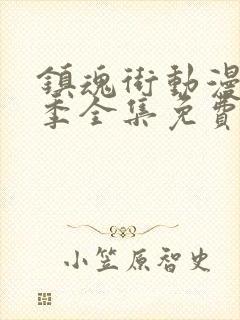 鎮魂街動漫
季全集免費
小笠原智史